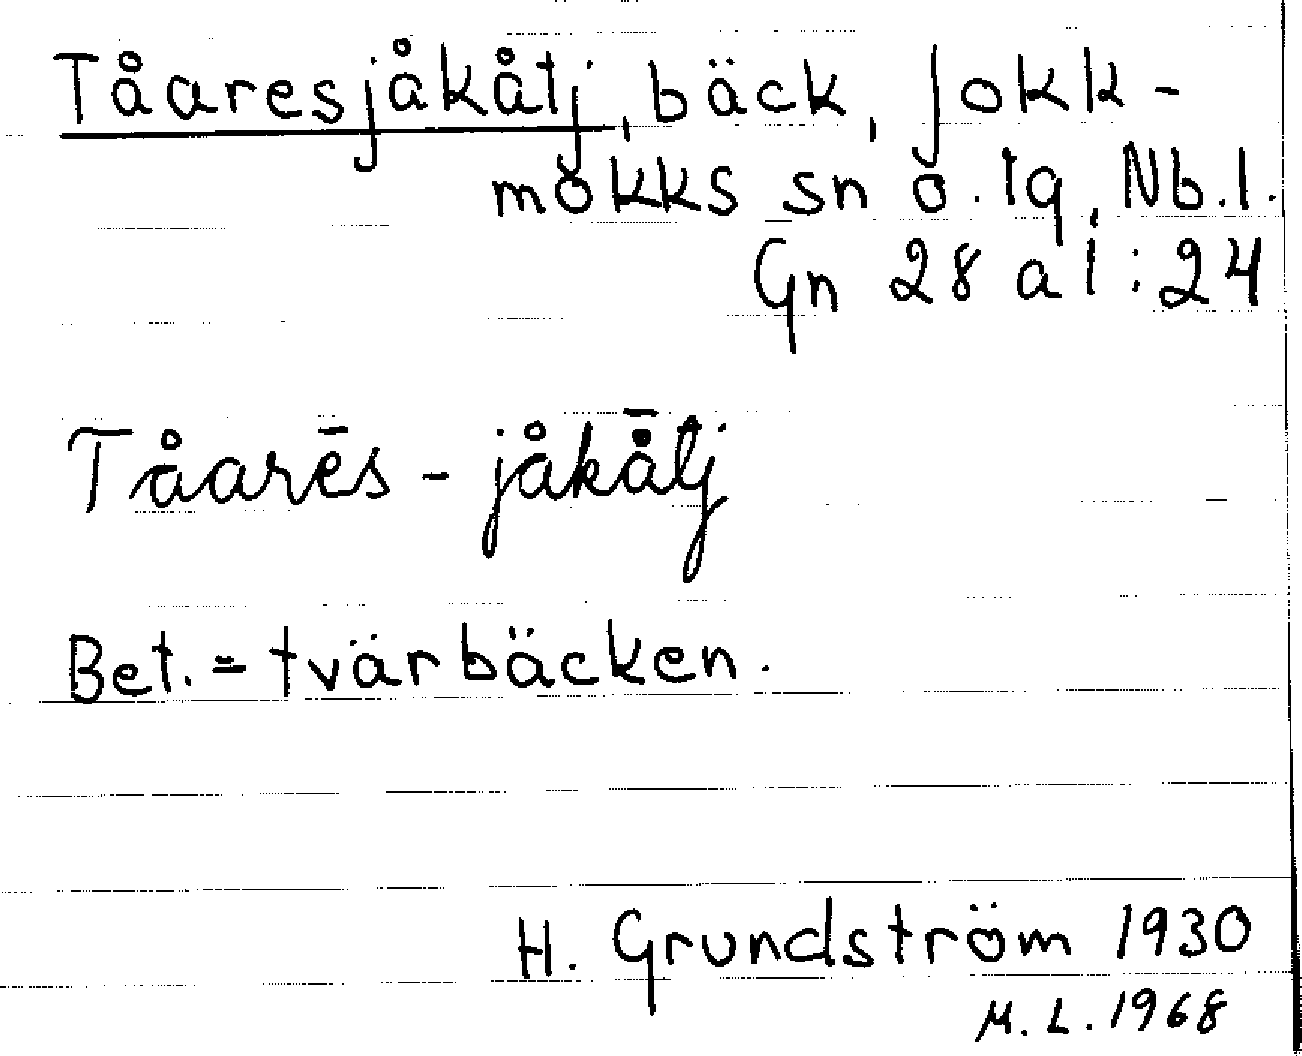 Tåaresjåkåtj, bäck, Jokk-
mokks sn o. tg, Nb. l.
Gn 28 a I : 24
Tåarēs - jåkå̄tj
Bet. = tvärbäcken.
H. Grundström 1930
M. L. 1968